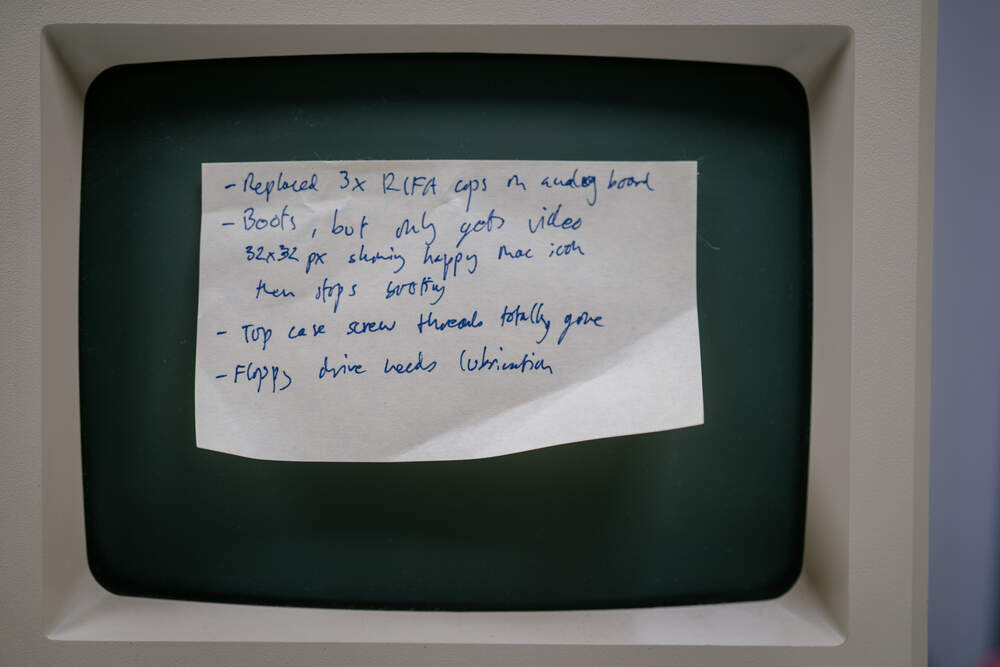 - Replaced 3x RIFA caps on analog board
- Boots, but only gets video
32x32 px showing happy mac icon
then stops booting
- Top case screw threads totally gone
- Floppy drive needs lubrication